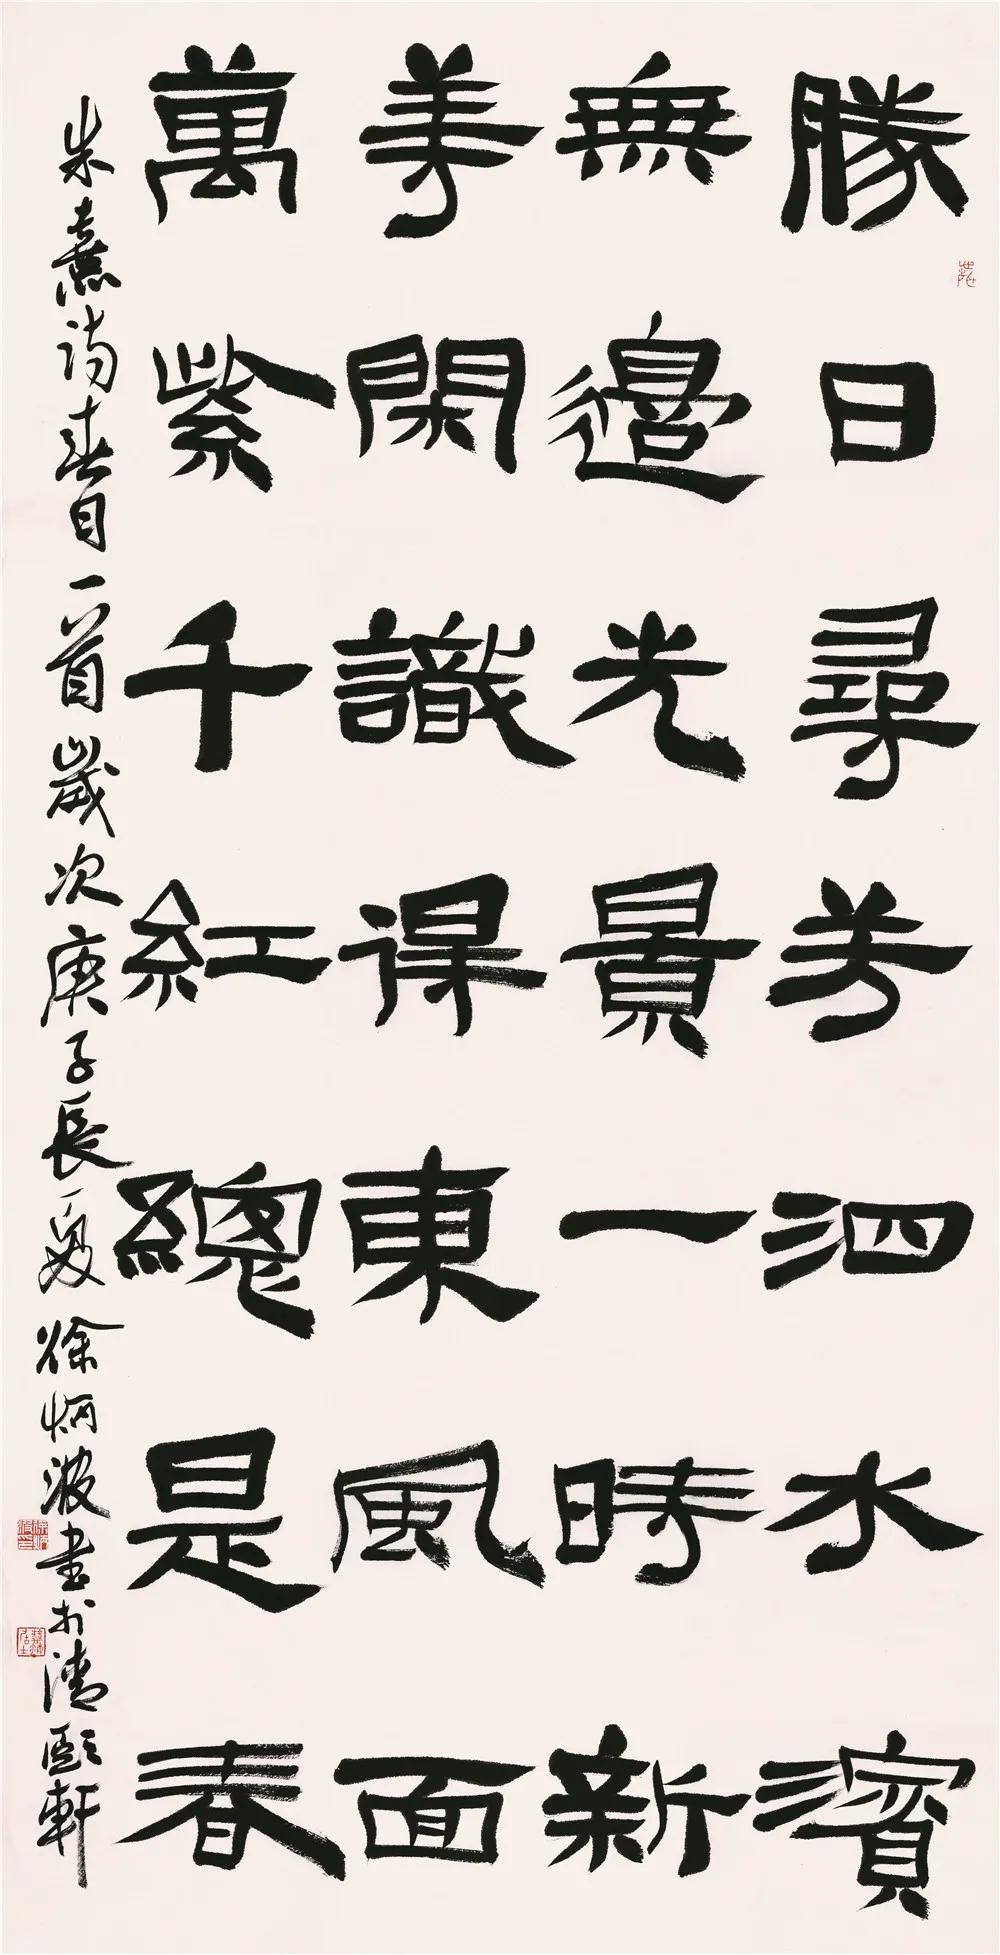 勝日尋芳泗水濱
無邊光景一時新
等閑識得東風面
萬紫千紅總是春
朱熹詩春日一首歲次庚子長夏徐炳波書於清軒